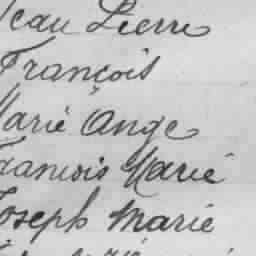 Jean Pierre
François
Marie Ange
François Marie
Joseph Marie